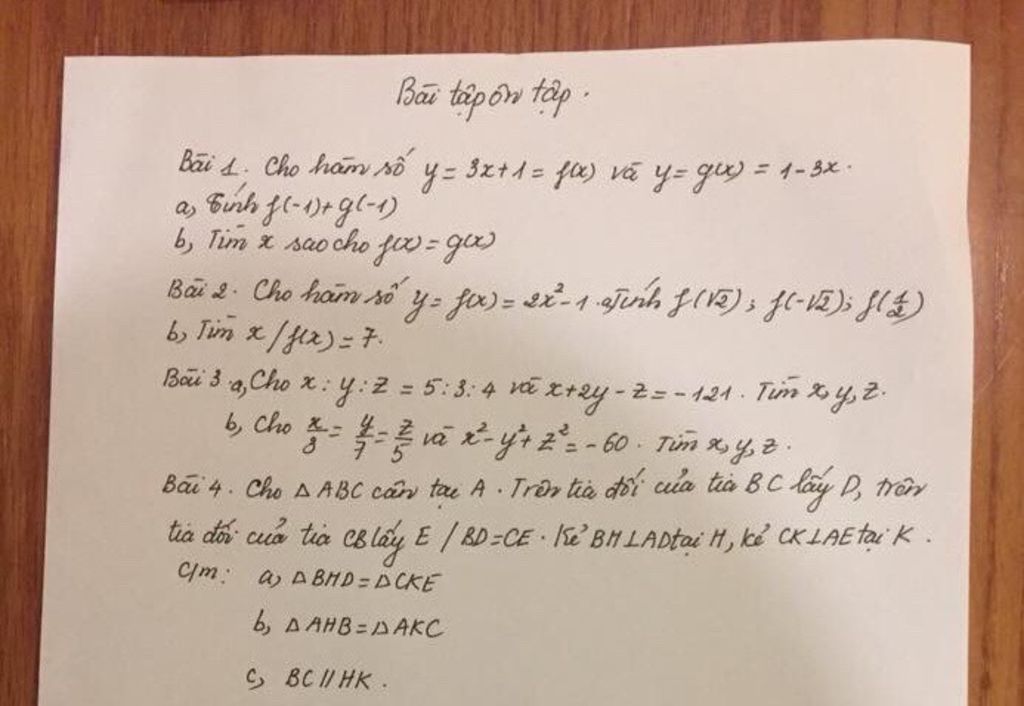 Bài tập ôn tập.
Bài 1. Cho hàm số y = 3x+1 = f(x) và y = g(x) = 1-3x.
a, Tính f(-1)+g(-1)
b, Tìm x sao cho f(x) = g(x)
Bài 2. Cho hàm số y = f(x) = 2x²-1. a, Tính f(√2); f(-√2); f(1/2)
b, Tìm x / f(x) = 7.
Bài 3. a, Cho x : y : z = 5 : 3 : 4 và x+2y-z = -121. Tìm x, y, z.
b, Cho x/3 = y/7 = z/5 và x²-y²+z² = -60. Tìm x, y, z.
Bài 4. Cho △ABC cân tại A. Trên tia đối của tia BC lấy D, trên
tia đối của tia CB lấy E / BD=CE. Kẻ BH⊥AD tại H, kẻ CK⊥AE tại K.
C/m: a, △BHD=△CKE
b, △AHB=△AKC
c, BC//HK.